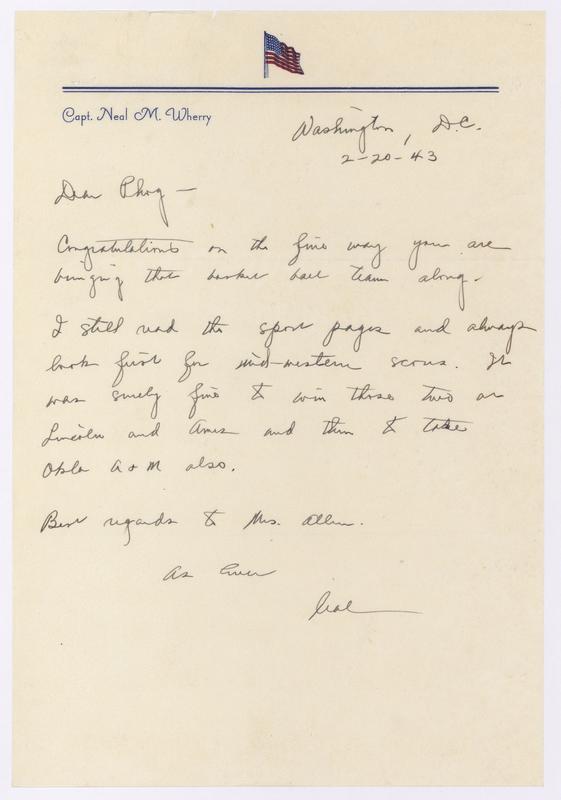 Capt. Neal M. Wherry
Washington, D.C.
2-20-43
Dear Phog —
Congratulations on the fine way you are
bringing that basket ball team along.
I still read the sport pages and always
look first for mid-western scores. It
was surely fine to win those two at
Lincoln and Ames and then to take
Okla A + M also.
Best regards to Mrs. Allen.
As Ever
Neal